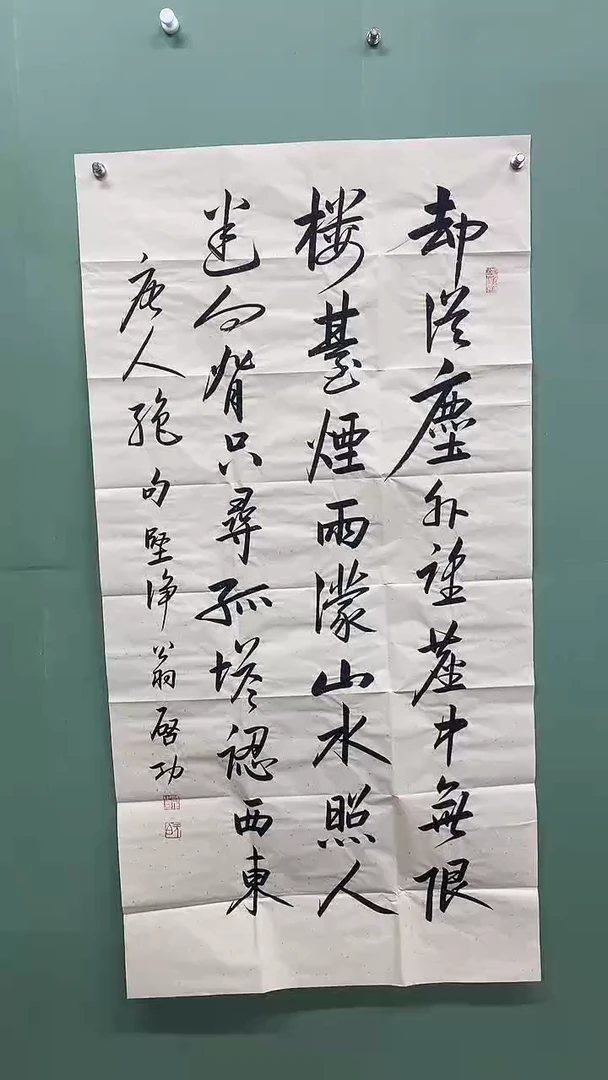 却從塵外望塵中無限
楼臺煙雨濛山水照人
迷向背只尋孤塔認西東
唐人絶句堅净翁啓功